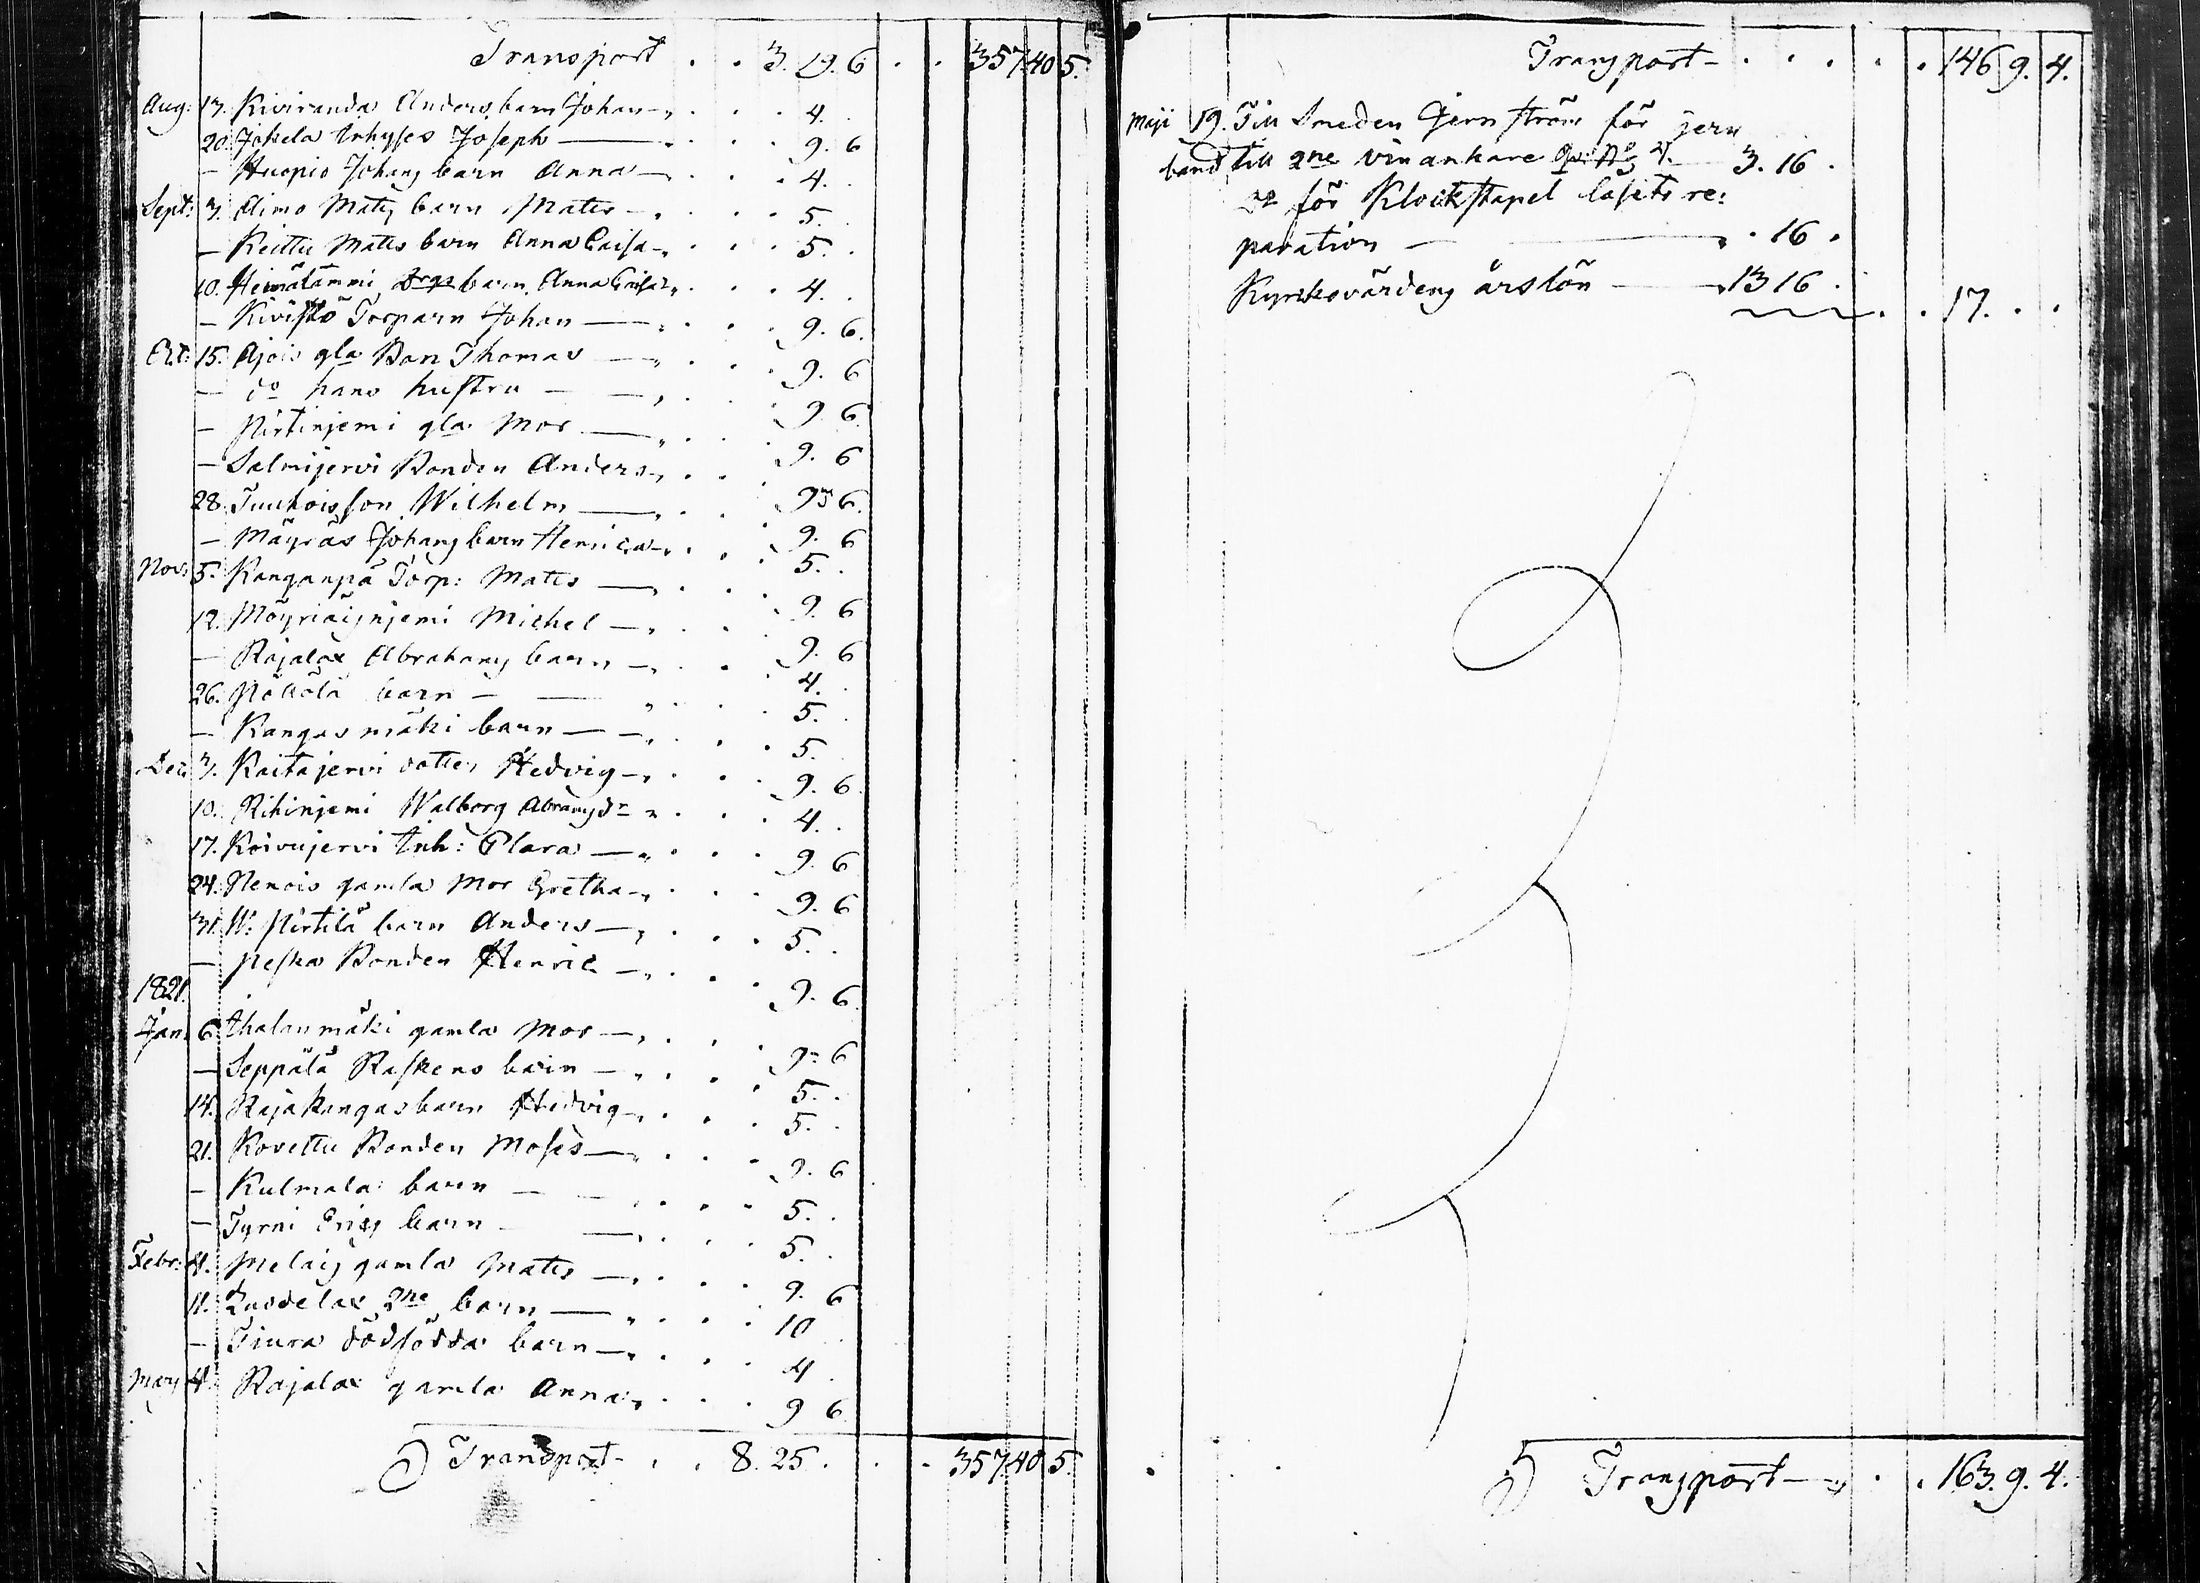 Transport . . 3. 19. 6 . . 357. 40 5.
Aug: 13. Kiviranda Anders barn Johan 4.
20. Jokela Inhyses Joseph 9. 6
— Huopio Johans barn Anna 4.
Sept: 3. Aimo Mats barn Mats 5.
— Keittu Mats barn Anna Caisa 5.
10. Heinälammi barn Anna Caisa 4.
— Kivistö Torparn Johan 9. 6.
Oct: 15. Ajois gla Bon Thomas 9. 6
— do hans hustru 9. 6
— Pirtinjemi gla Mor 9. 6
— Salmijervi Bonden Anders 9. 6.
28. Tuuhoisson Wilhelm 9. 6
— Mäyräs Johans barn Henrica 5.
Nov: 5. Kanganpä Torp: Mats 9. 6
12. Möyriäisnjemi Michel 9. 6
— Rajalax Abrahams barn 4.
26. Pöllölä barn 5.
— Kangasmäki barn 5.
Dec: 3. Kaitajervi dotter Hedvig 9. 6.
10. Rihinjemi Walborg Abramsdr 4.
17. Koivujervi Inh: Clara 9. 6
24. Nenois gamla Mor Gretha 9. 6
31. W: Pirtilä barn Anders 5.
— Peska Bonden Henric 9. 6.
1821.
Jan: 6. Ahalanmäki gamla Mor 9. 6
— Seppälä Raskens barn 5.
14. Rajakangas barn Hedvig 5.
21. Kovettu Bonden Moses 9. 6
— Kulmala barn 5.
— Tyrni Erics barn 5.
Febr: 4. Melais gamla Mats 9. 6
11. Luodelax 2ne barn 10
— Tiura dödfödda barn 4
Mars 4. Rajalax gamla Anna 9 6
Transport . . 8. 25. . . 357. 40 5.
Transport . . . . . 146 9. 4.
Maji 19. Till Smeden Gernström för jern
band till 2ne vin ankare 3. 16.
do för Klockstapel låsets re:
paration . 16.
Kyrkovärdens årslön 13 16.
17.
Transport . . 163. 9. 4.